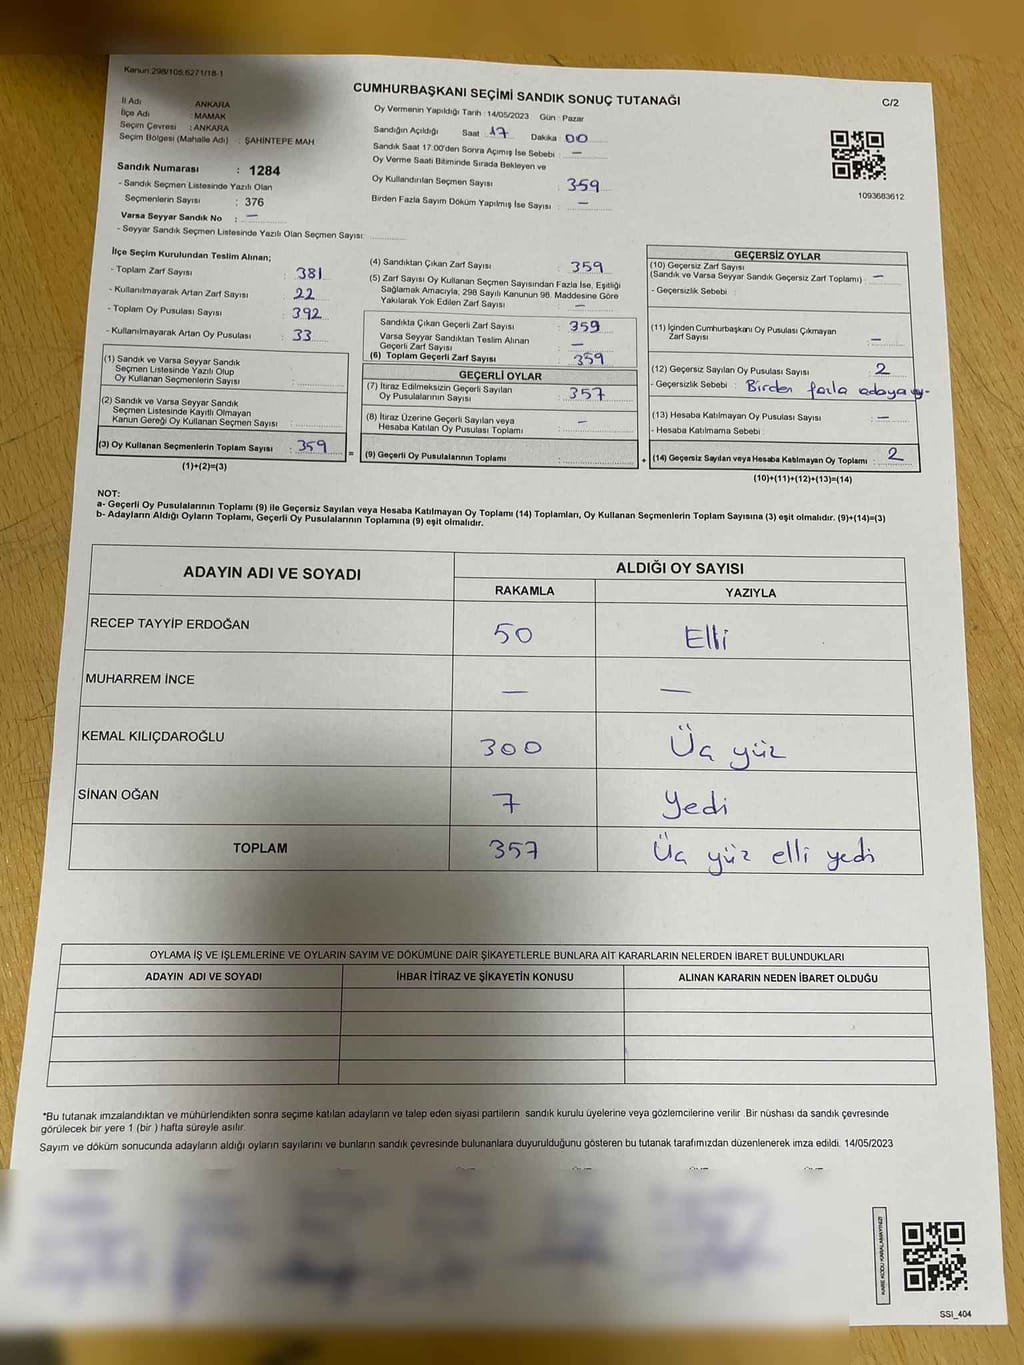 Kanun:298/105,6271/18-1
CUMHURBAŞKANI SEÇİMİ SANDIK SONUÇ TUTANAĞI
C/2
İl Adı ANKARA
İlçe Adı : MAMAK
Seçim Çevresi : ANKARA
Seçim Bölgesi (Mahalle Adı) : ŞAHİNTEPE MAH
Sandık Numarası : 1284
- Sandık Seçmen Listesinde Yazılı Olan
Seçmenlerin Sayısı : 376
Varsa Seyyar Sandık No : —
- Seyyar Sandık Seçmen Listesinde Yazılı Olan Seçmen Sayısı:
Oy Vermenin Yapıldığı Tarih : 14/05/2023 Gün : Pazar
Sandığın Açıldığı Saat : 17 Dakika : 00
Sandık Saat 17:00'den Sonra Açımış İse Sebebi : —
Oy Verme Saati Bitiminde Sırada Bekleyen ve
Oy Kullandırılan Seçmen Sayısı : 359
Birden Fazla Sayım Döküm Yapılmış İse Sayısı : —
1093683612
İlçe Seçim Kurulundan Teslim Alınan;
- Toplam Zarf Sayısı : 381
- Kullanılmayarak Artan Zarf Sayısı : 22
- Toplam Oy Pusulası Sayısı : 392
- Kullanılmayarak Artan Oy Pusulası : 33
(1) Sandık ve Varsa Seyyar Sandık
Seçmen Listesinde Yazılı Olup
Oy Kullanan Seçmenlerin Sayısı :
(2) Sandık ve Varsa Seyyar Sandık
Seçmen Listesinde Kayıtlı Olmayan
Kanun Gereği Oy Kullanan Seçmen Sayısı :
(3) Oy Kullanan Seçmenlerin Toplam Sayısı : 359
(1)+(2)=(3)
=
(4) Sandıktan Çıkan Zarf Sayısı : 359
(5) Zarf Sayısı Oy Kullanan Seçmen Sayısından Fazla İse, Eşitliği
Sağlamak Amacıyla, 298 Sayılı Kanunun 98. Maddesine Göre
Yakılarak Yok Edilen Zarf Sayısı : —
Sandıkta Çıkan Geçerli Zarf Sayısı : 359
Varsa Seyyar Sandıktan Teslim Alınan
Geçerli Zarf Sayısı : —
(6) Toplam Geçerli Zarf Sayısı : 359
GEÇERLİ OYLAR
(7) İtiraz Edilmeksizin Geçerli Sayılan
Oy Pusulalarının Sayısı : 357
(8) İtiraz Üzerine Geçerli Sayılan veya
Hesaba Katılan Oy Pusulası Toplamı : —
(9) Geçerli Oy Pusulalarının Toplamı :
+
GEÇERSİZ OYLAR
(10) Geçersiz Zarf Sayısı
(Sandık ve Varsa Seyyar Sandık Geçersiz Zarf Toplamı) : —
- Geçersizlik Sebebi :
(11) İçinden Cumhurbaşkanı Oy Pusulası Çıkmayan
Zarf Sayısı : —
(12) Geçersiz Sayılan Oy Pusulası Sayısı : 2
- Geçersizlik Sebebi : Birden fazla adaya oy-
(13) Hesaba Katılmayan Oy Pusulası Sayısı : —
- Hesaba Katılmama Sebebi :
(14) Geçersiz Sayılan veya Hesaba Katılmayan Oy Toplamı : 2
(10)+(11)+(12)+(13)=(14)
NOT:
a- Geçerli Oy Pusulalarının Toplamı (9) ile Geçersiz Sayılan veya Hesaba Katılmayan Oy Toplamı (14) Toplamları, Oy Kullanan Seçmenlerin Toplam Sayısına (3) eşit olmalıdır. (9)+(14)=(3)
b- Adayların Aldığı Oyların Toplamı, Geçerli Oy Pusulalarının Toplamına (9) eşit olmalıdır.
ADAYIN ADI VE SOYADI
ALDIĞI OY SAYISI
RAKAMLA YAZIYLA
RECEP TAYYİP ERDOĞAN 50 Elli
MUHARREM İNCE — —
KEMAL KILIÇDAROĞLU 300 Üç yüz
SİNAN OĞAN 7 Yedi
TOPLAM 357 Üç yüz elli yedi
OYLAMA İŞ VE İŞLEMLERİNE VE OYLARIN SAYIM VE DÖKÜMÜNE DAİR ŞİKAYETLERLE BUNLARA AİT KARARLARIN NELERDEN İBARET BULUNDUKLARI
ADAYIN ADI VE SOYADI İHBAR İTİRAZ VE ŞİKAYETİN KONUSU ALINAN KARARIN NEDEN İBARET OLDUĞU
*Bu tutanak imzalandıktan ve mühürlendikten sonra seçime katılan adayların ve talep eden siyasi partilerin sandık kurulu üyelerine veya gözlemcilerine verilir .Bir nüshası da sandık çevresinde
görülecek bir yere 1 (bir ) hafta süreyle asılır.
Sayım ve döküm sonucunda adayların aldığı oyların sayılarını ve bunların sandık çevresinde bulunanlara duyurulduğunu gösteren bu tutanak tarafımızdan düzenlenerek imza edildi. 14/05/2023
KARE KODU KARALAMAYINIZ!
SSI_404